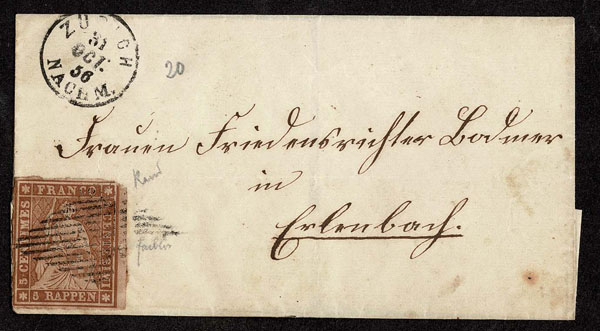 ZÜRICH
31
OCT.
56
NACHM.
20
Frauen Friedensrichter Bodmer
in
Erlenbach.
FRANCO
5 CENTIMES
5 RAPPEN
farblos